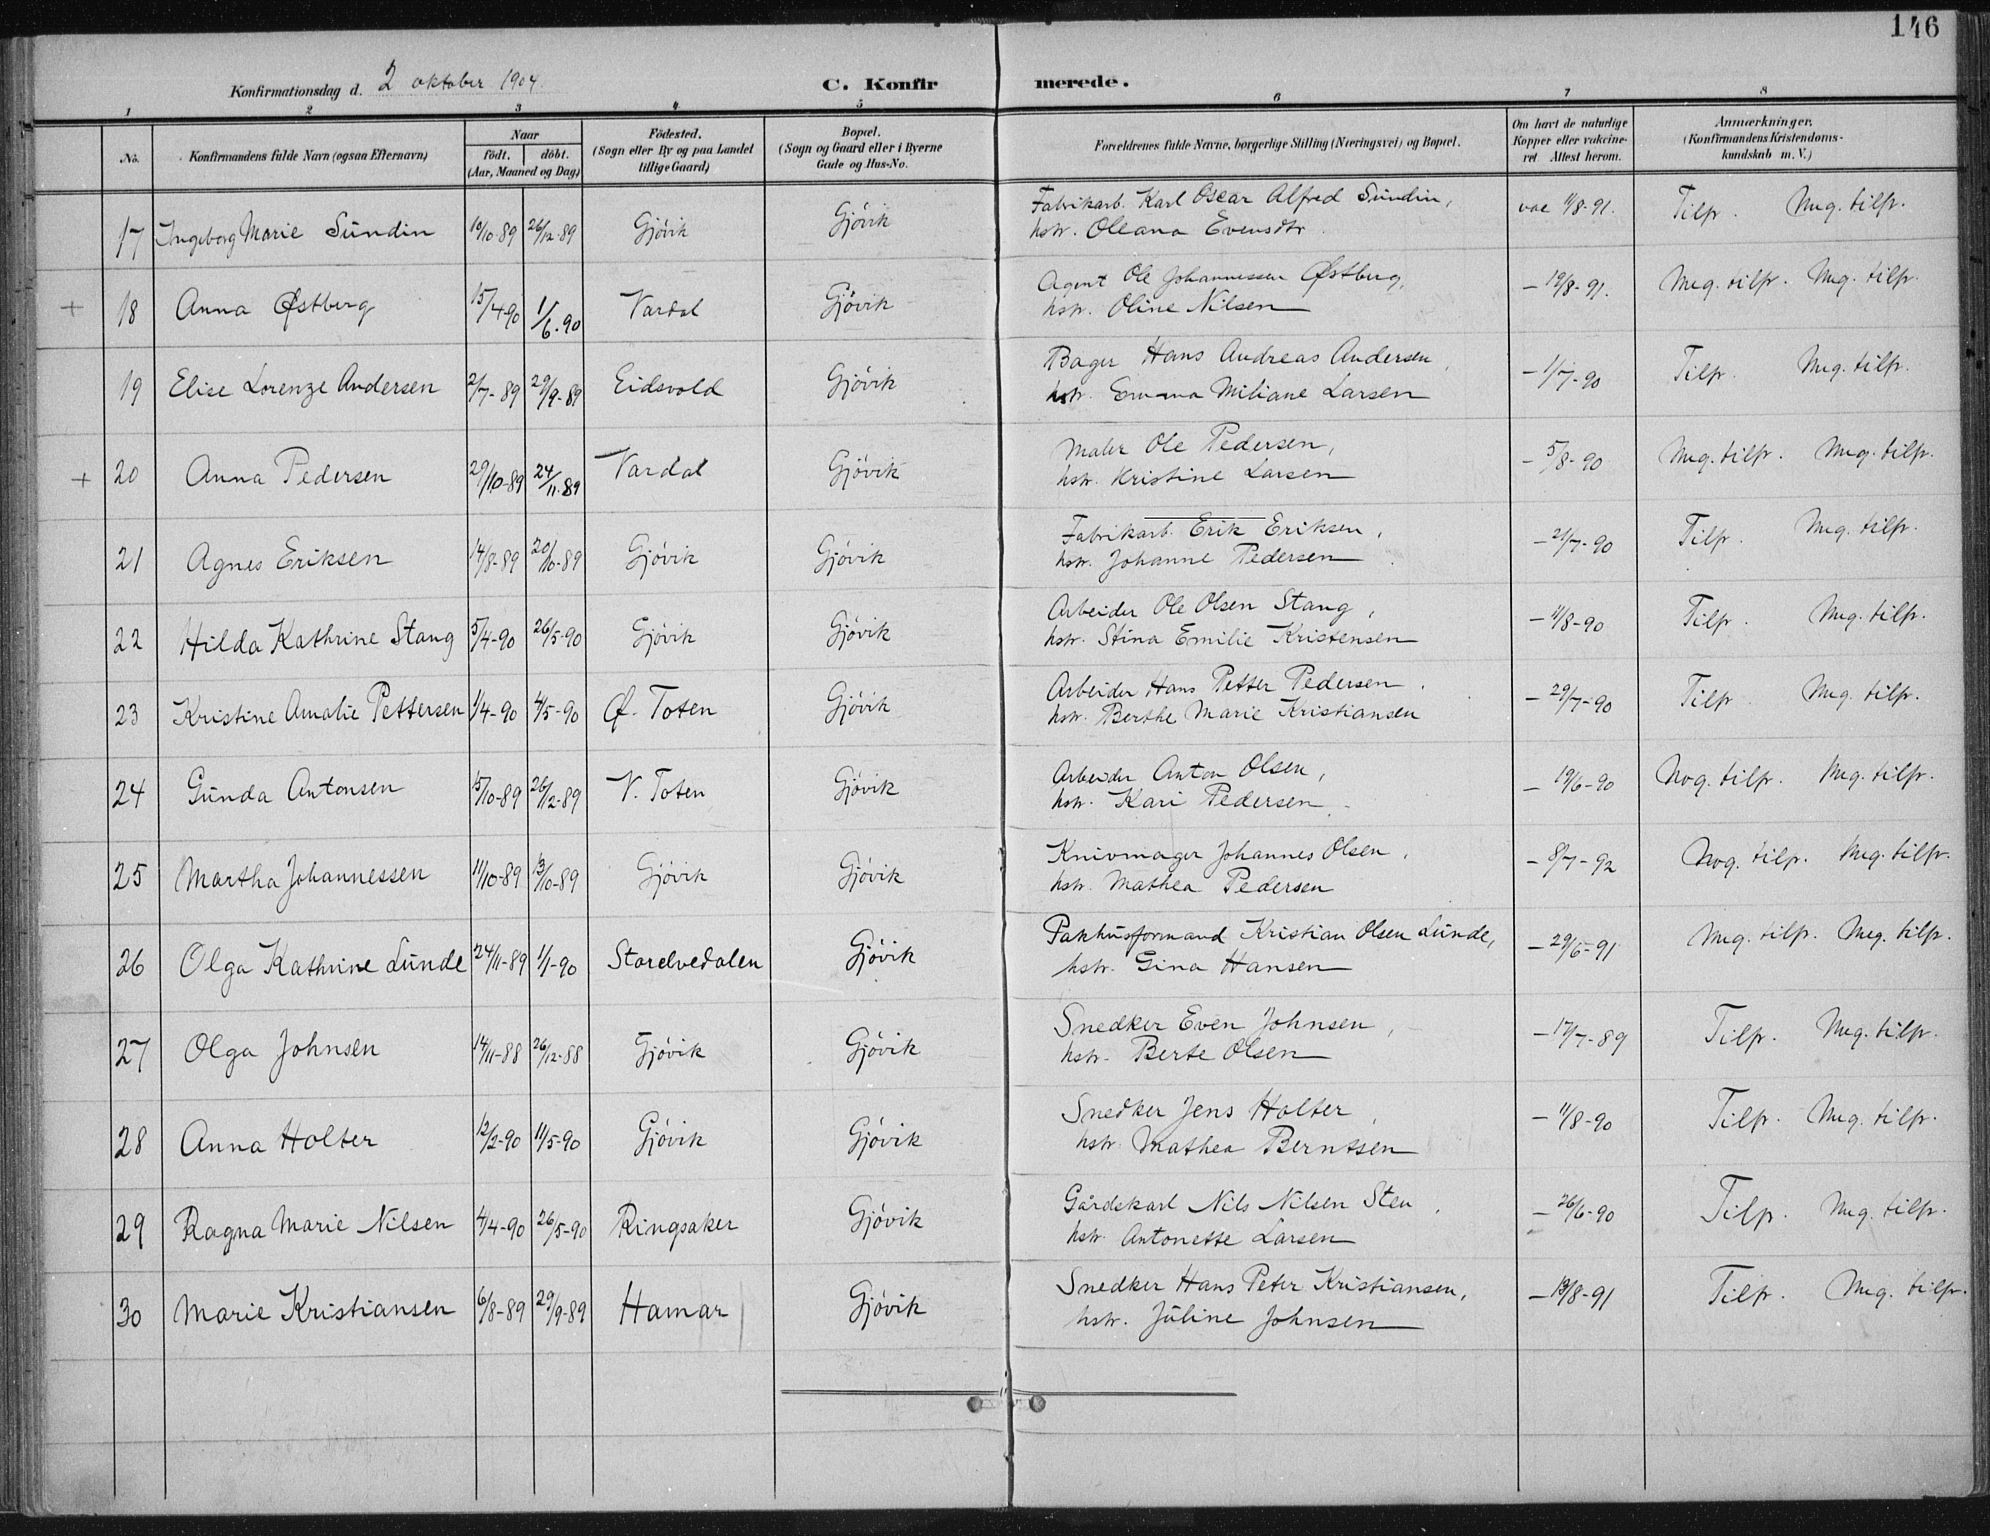 146
Konfirmationsdag d. 2 oktober 1904.
C. Konfirmerede.
1 2 3 4 5 6 7 8
No. Konfirmandens fulde Navn (ogsaa Efternavn) Naar födt. döbt. (Aar, Maaned og Dag) Födested. (Sogn eller By og paa Landet tillige Gaard) Bopæl. (Sogn og Gaard eller i Byerne Gade og Hus-No. Forældrenes fulde Navne, borgerlige Stilling (Næringsvei) og Bopæl. Om havt de naturlige Kopper eller vakcineret. Attest herom. Anmærkninger. (Konfirmandens Kristendomskundskab m. V.)
17 Ingeborg Marie Sundin 10/10-89 26/12-89 Gjövik Gjövik Fabrikarb. Karl Oscar Alfred Sundin,
hstr. Oleana Evensdtr. vac 11/8-91. Tilfr. Meg. tilfr.
+ 18 Anna Østberg 15/4-90 1/6-90 Vardal Gjövik Agent Ole Johannessen Østberg,
hstr. Oline Nilsen — 19/8-91. Meg. tilfr. Meg. tilfr.
19 Elise Lorenze Andersen 2/7-89 29/9-89 Eidsvold Gjövik Bager Hans Andreas Andersen,
hstr. Emma Miliane Larsen — 1/7-90 Tilfr. Meg. tilfr.
+ 20 Anna Pedersen 29/10-89 24/11-89 Vardal Gjövik Maler Ole Pedersen,
hstr. Kristine Larsen — 5/8-90 Meg. tilfr. Meg. tilfr.
21 Agnes Eriksen 14/8-89 20/10-89 Gjövik Gjövik Fabrikarb. Erik Eriksen,
hstr. Johanne Pedersen — 21/7-90 Tilfr. Meg. tilfr.
22 Hilda Kathrine Stang 5/4-90 26/5-90 Gjövik Gjövik Arbeider Ole Olsen Stang,
hstr. Stina Emilie Kristensen — 11/8-90 Tilfr. Meg. tilfr.
23 Kristine Amalie Pettersen 1/4-90 4/5-90 Ø. Toten Gjövik Arbeider Hans Petter Pedersen.
hstr. Berthe Marie Kristiansen — 29/7-90 Tilfr. Meg. tilfr.
24 Gunda Antonsen 15/10-89 26/12-89 V. Toten Gjövik Arbeider Anton Olsen,
hstr. Kari Pedersen — 19/6-90 Nog. tilfr. Meg. tilfr.
25 Martha Johannessen 11/10-89 13/10-89 Gjövik Gjövik Knivmager Johannes Olsen,
hstr. Mathea Pedersen — 8/7-92 Nog. tilfr. Meg. tilfr.
26 Olga Kathrine Lunde 24/11-89 1/1-90 Storelvedalen Gjövik Pakhusformand Kristian Olsen Lunde,
hstr. Gina Hansen — 29/6-91 Meg. tilfr. Meg. tilfr.
27 Olga Johnsen 14/11-88 26/12-88 Gjövik Gjövik Snedker Even Johnsen,
hstr. Berte Olsen — 17/7-89 Tilfr. Meg. tilfr.
28 Anna Holter 12/2-90 11/5-90 Gjövik Gjövik Snedker Jens Holter,
hstr. Mathea Berntsen — 11/8-90 Tilfr. Meg. tilfr.
29 Ragna Marie Nilsen 4/4-90 26/5-90 Ringsaker Gjövik Gårdskarl Nils Nilsen Sten,
hstr. Antonette Larsen — 26/6-90 Tilfr. Meg. tilfr.
30 Marie Kristiansen 6/8-89 29/9-89 Hamar Gjövik Snedker Hans Peter Kristiansen,
hstr. Juline Johnsen — 13/8-91 Tilfr. Meg. tilfr.